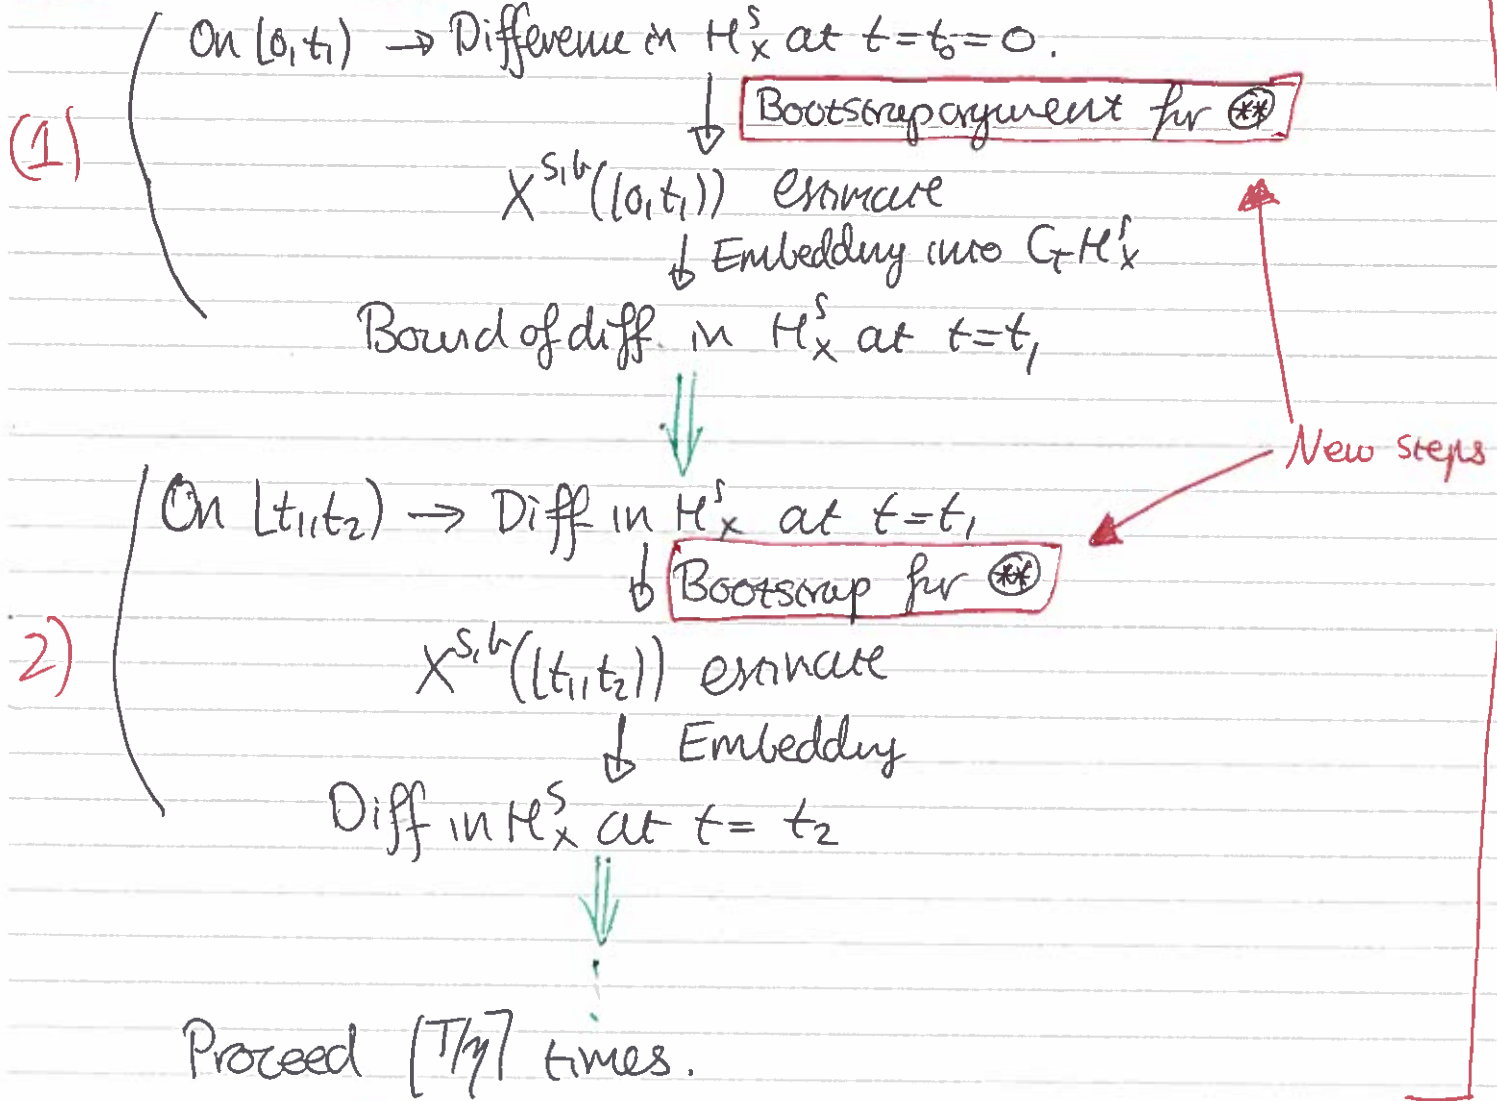 (1)
On [0,t₁) → Difference in Hˢₓ at t=t₀=0.
↓ Bootstrap argument for ⊛⊛
X^{s,b}([0,t₁)) estimate
↓ Embedding into C_T Hˢₓ
Bound of diff. in Hˢₓ at t=t₁
⇓
New steps
2)
On [t₁,t₂) → Diff in Hˢₓ at t=t₁
↓ Bootstrap for ⊛⊛
X^{s,b}([t₁,t₂)) estimate
↓ Embedding
Diff in Hˢₓ at t= t₂
⇓
⋮
Proceed ⌈T/η⌉ times.